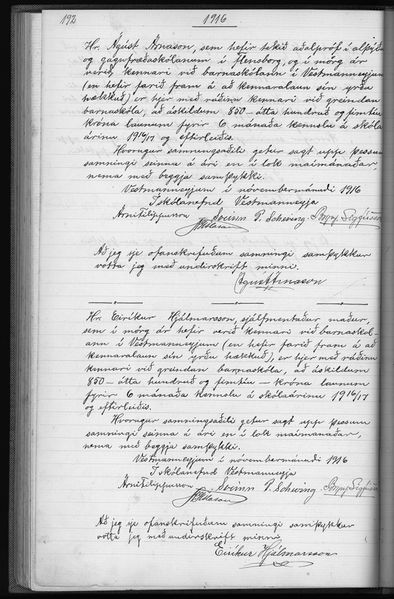 192
1916
Hr. Ágúst Árnason, sem hefir tekið aðalpróf í alþýðu
og gagnfræðaskólanum í Flensborg, og í mörg ár
verið kennari við barnaskólann í Vestmannaeyjum
(en hefir farið fram á að kennaralaun sín yrðu
hækkuð) er hjer með ráðinn kennari við greindan
barnaskóla, að áskildum 850 - átta hundruð og fimtíu -
króna launum fyrir 6 mánaða kenslu á skóla
árinu 1916/17 og eftirleiðis.
Hvoragur samningsaðili getur sagt upp þessum
samningi seinna á ári en í lok maímánaðar
nema með beggja samþykki.
Vestmannaeyjum í nóvembermánuði 1916
Í skólanefnd Vestmannaeyja
Árni Filippusson Sveinn P. Scheving Brynj. Sigfússon
Að jeg sje ofanskrifuðum samningi samþykkur
votta jeg með undirskrift minni.
Ágúst Árnason
Hr. Eiríkur Hjálmarsson, sjálfmentaður maður,
sem í mörg ár hefir verið kennari við barnaskól-
ann í Vestmannaeyjum (en hefir farið fram á að
kennaralaun sín yrðu hækkuð), er hjer með ráðinn
kennari við greindan barnaskóla, að áskildum
850 - átta hundruð og fimtíu - króna launum
fyrir 6 mánaða kenslu á skólaárinu 1916/17
og eftirleiðis.
Hvoragur samningsaðili getur sagt upp þessum
samningi seinna á ári en í lok maímánaðar,
nema með beggja samþykki.
Vestmannaeyjum í nóvembermánuði 1916
Í skólanefnd Vestmannaeyja
Árni Filippusson Sveinn P. Scheving Brynj. Sigfússon
Að jeg sje ofanskrifuðum samningi samþykkur
votta jeg með undirskrift minni
Eiríkur Hjálmarsson